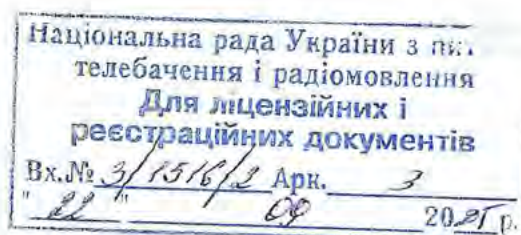 Національна рада України з пит.
телебачення і радіомовлення
Для ліцензійних і
реєстраційних документів
Вх.№ 3/1516/2 Арк. 3
"22" 09 2021 р.